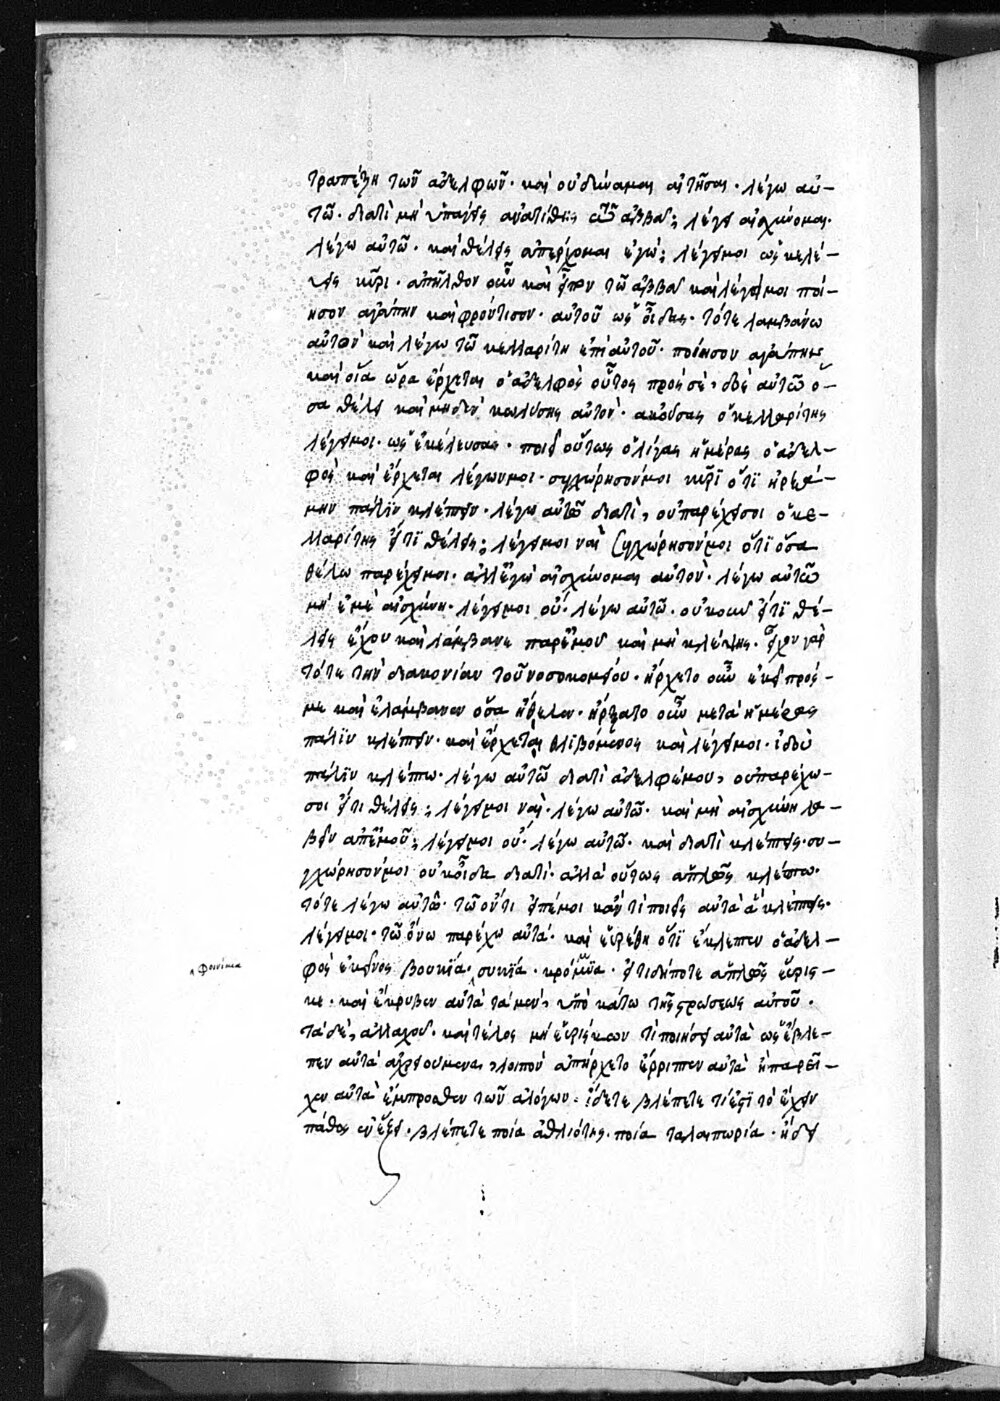 τραπέζη τῶν ἀδελφῶν· καὶ οὐ δύναμαι αἰτῆσαι· λέγω αὐ-
τῶ· διατὶ μὴ ὑπάγεις ἀνατίθης τῶ ἀββᾶ; λέγει αἰσχύνομαι·
λέγω αὐτῶ· καὶ θέλεις ἀπέρχομαι ἐγώ; λέγει μοι ὡς κελέ-
εις κῦρι· ἀπῆλθον οὖν καὶ εἶπον τῶ ἀββᾶ καὶ λέγει μοι ποί-
ησον ἀγάπην καὶ φρόντισον· αὐτοῦ ὡς οἶδας· τότε λαμβάνω
αὐτὸν καὶ λέγω τῶ κελλαρίτη ἐπὶ αὐτοῦ· ποίησον ἀγάπην
καὶ οἵα ὥρα ἔρχεται ὁ ἀδελφὸς οὗτος πρὸς σέ, δὸς αὐτῶ ὅ-
σα θέλει καὶ μηδὲν κωλύσης αὐτόν· ἀκούσας ὁ κελλαρίτης
λέγει μοι· ὡς ἐκέλευσας· ποιεῖ οὕτως ὀλίγας ἡμέρας ὁ ἀδελ-
φὸς καὶ ἔρχεται λέγων μοι· συγχώρησόν μοι κῦρϊ ὅτϊ ἠρξά-
μην πάλϊν κλέπτειν· λέγω αὐτῶ διατὶ, οὐ παρέχει σοι ὁ κε-
λλαρίτης εἴ τϊ θέλεις; λέγει μοι ναὶ συγχώρησόν μοι ὅτϊ ὅσα
θέλω παρέχει μοι· ἀλλ' ἐγὼ αἰσχύνομαι αὐτὸν· λέγω αὐτῶ
μὴ ἐμὲ αἰσχύνη· λέγει μοι οὔ· λέγω αὐτῶ· οὐκοῦν εἴ τϊ θέ-
λεις ἔρχου καὶ λάμβανε παρ' ἐμοῦ καὶ μὴ κλέπτης· εἶχον γὰρ
τότε τὴν διακονίαν τοῦ νοσοκομείου· ἤρχετο οὖν ἐκεῖ πρός-
με καὶ ἐλάμβανεν ὅσα ἤθελεν· ἤρξατο οὖν μετὰ ἡμέρας
πάλϊν κλέπτειν· καὶ ἔρχεται θλϊβόμενος καὶ λέγει μοι· ἰδοὺ
πάλϊν κλέπτω· λέγω αὐτῶ διατὶ ἀδελφέ μου, οὐ παρέχω-
σοι εἴ τι θέλεις; λέγει μοι ναί· λέγω αὐτῶ· καὶ μὴ αἰσχύνη λα-
βεῖν ἀπ' ἐμοῦ; λέγει μοι οὔ· λέγω αὐτῶ· καὶ διατὶ κλέπτεις· συ-
γχώρησόν μοι οὐκ οἶδα διατί· ἀλλὰ οὕτως ἁπλῶς κλέπτω·
τότε λέγω αὐτῶ· τῶ ὄντι εἰπέ μοι κἂν τί ποιεῖς αὐτὰ ἃ κλέπτεις·
λέγει μοι· τῶ ὄνω παρέχω αὐτά· καὶ εὑρέθη ὅτϊ ἔκλεπτεν ὁ ἀδελ-
φὸς ἐκεῖνος βουκϊά· συκϊα· κρόμμϋα· εἴ τι δήποτε ἁπλῶς εὕρις-
κε· καὶ ἔκρυβεν αὐτὰ τὰ μὲν, ὑποκάτω τῆς στρώσεως αὐτοῦ·
τὰ δὲ, ἀλλαχοῦ· καὶ τέλος μὴ εὑρίσκων τί ποιήσει αὐτὰ ὡς ἔβλε-
πεν αὐτὰ ἀχρειούμενα, λοιπὸν ἀπήρχετο ἔρριπτεν αὐτὰ ἢ παρεῖ-
χεν αὐτὰ ἔμπροσθεν τῶν ἀλόγων· ἴδετε βλέπετε τί ἐστϊ τὸ ἔχειν
πάθος ἐν ἕξει· βλέπετε ποία ἀθλιότης· ποία ταλαιπωρία· ἤδει
φοινίκια